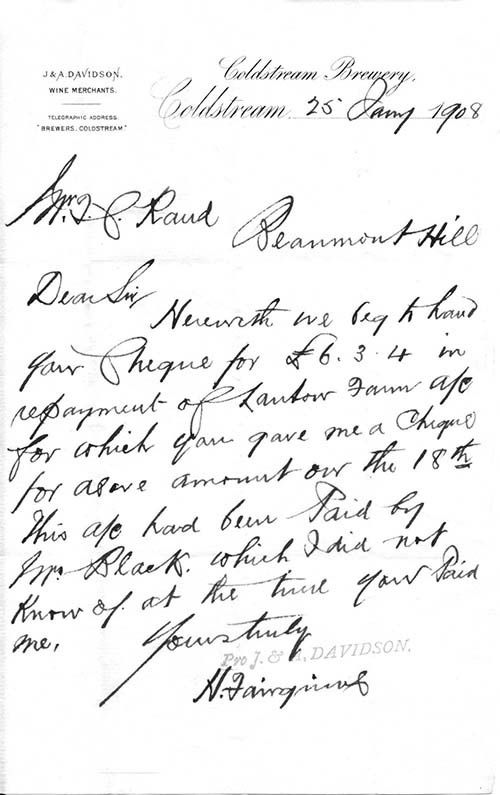 J & A. DAVIDSON,
WINE MERCHANTS.
TELEGRAPHIC ADDRESS
"BREWERS. COLDSTREAM"
Coldstream Brewery,
Coldstream, 25 Jany 1908
Mr. J. C. Rand
Beaumont Hill
Dear Sir
Herewith we beg to hand
you Cheque for £6.3.4 in
repayment of Farm a/c
for which you gave me a Cheque
for above amount on the 18th
This a/c had been Paid by
Mr. Black. which I did not
Know of. at the time you Paid
me.
Yours truly
Pro J. & A. DAVIDSON.
H.